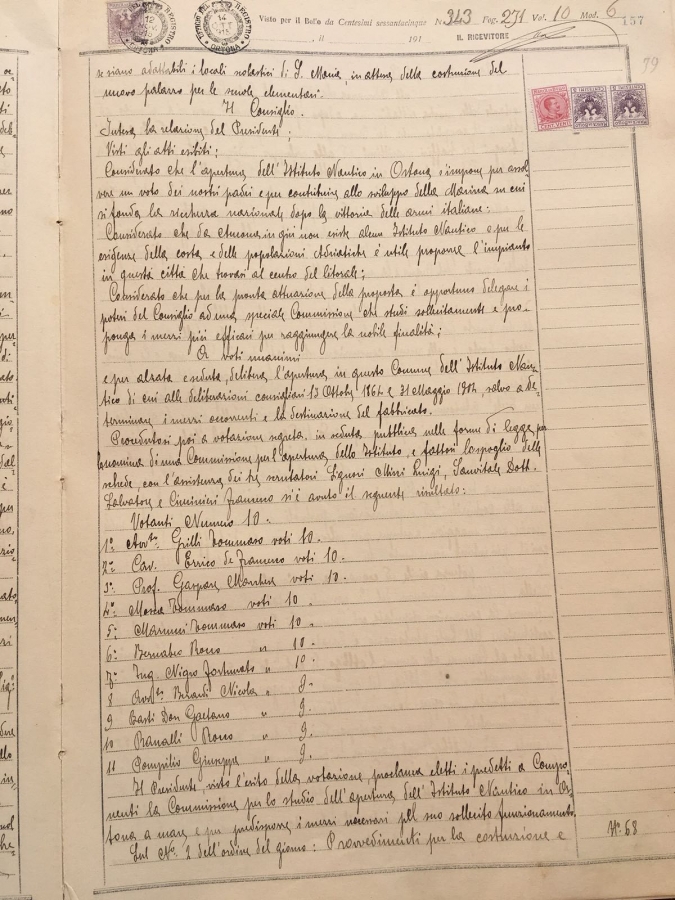 Visto per il Bollo da Centesimi sessantacinque N. 343 Pag. 271 Vol. 10 Mod. 6
157
li 191 IL RICEVITORE
79
se siano adattabili i locali scolastici di S. Maria, in attesa della costruzione del
nuovo palazzo per le scuole elementari.
Il Consiglio.
Intesa la relazione del Presidente;
Visti gli atti esibiti;
Considerato che l'apertura dell'Istituto Nautico in Ortona s'impone per assol
vere un voto dei nostri padri e per contribuire allo sviluppo della Marina su cui
si fonda la ricchezza nazionale dopo la vittoria delle armi italiane:
Considerato che da Ancona in giù non esiste alcun Istituto Nautico e per le
esigenze della costa e delle popolazioni Adriatiche è utile proporre l'impianto
in questa città che trovasi al centro del litorale;
Considerato che per la pronta attuazione della proposta è opportuno delegare i
poteri del Consiglio ad una speciale Commissione che studi sollecitamente e pro-
ponga i mezzi più efficaci per raggiungere la nobile finalità;
A voti unanimi
e per alzata e seduta, delibera l'apertura in questo Comune dell'Istituto Nau-
tico di cui alle deliberazioni consigliari 13 Ottob. 1864 e 31 Maggio 1902, salvo a de-
terminare i mezzi occorrenti e la destinazione del fabbricato.
Procedutosi poi a votazione segreta in seduta pubblica nelle forme di legge per
la nomina di una Commissione per l'apertura dello Istituto, e fattosi lo spoglio delle
schede, con l'assistenza dei tre scrutatori Signori Luigi, Sanvitale Dott.
Salvatore e Francesco si è avuto il seguente risultato:
Votanti Numero 10.
1º Avv.to Grilli Tommaso voti 10.
2º Cav. Errico de Francesco voti 10.
3º Prof. Gaspare voti 10.
4º Mosca Tommaso voti 10.
5º Marinucci Tommaso voti 10.
6º Bernabeo Rocco " 10.
7º Ing. Nigro Fortunato " 10.
8 Avv.to Berardi Nicola " 9.
9 Basti Don Gaetano " 9.
10 Ranalli Rocco " 9.
11 Pompilio Giuseppe " 9.
Il Presidente, visto l'esito della votazione, proclama eletti i predetti a Compo-
nenti la Commissione per lo studio dell'apertura dell'Istituto Nautico in Or-
tona a mare e per predisporre i mezzi necessari pel suo sollecito funzionamento.
Sul Nº 2 dell'ordine del giorno: Provvedimenti per la costruzione e
Nº 68